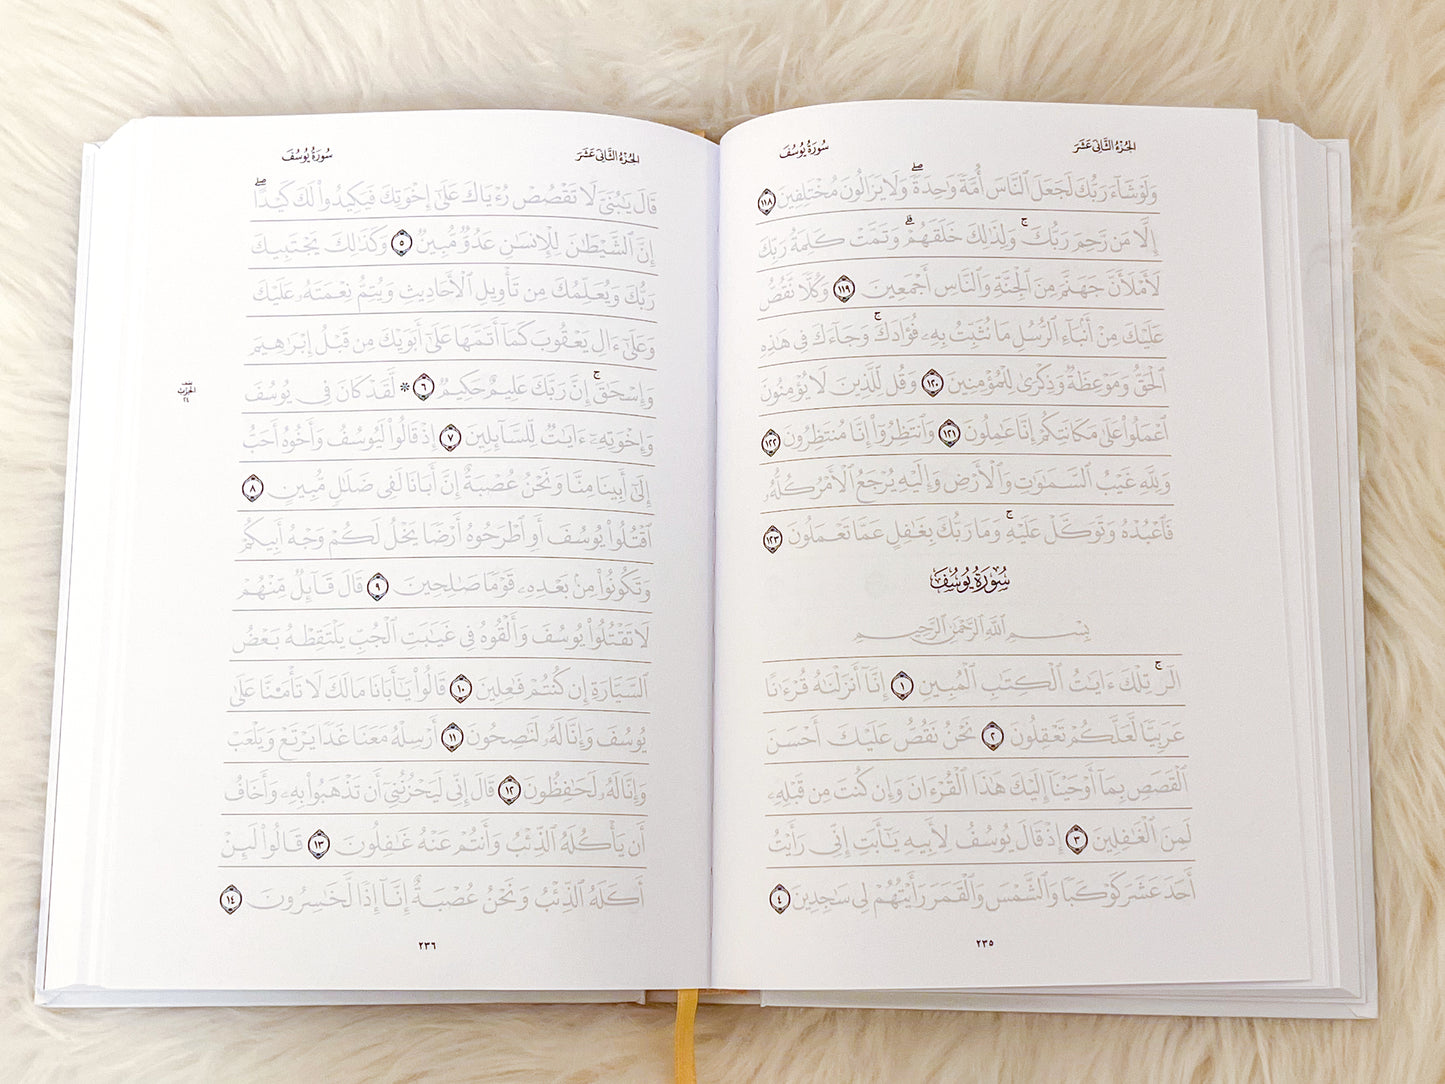 سُورَةُ يُوسُفَ
الجُزْءُ الثَّانِي عَشَرَ
وَلَوْ شَآءَ رَبُّكَ لَجَعَلَ ٱلنَّاسَ أُمَّةً وَٰحِدَةً ۖ وَلَا يَزَالُونَ مُخْتَلِفِينَ ١١٨
إِلَّا مَن رَّحِمَ رَبُّكَ ۚ وَلِذَٰلِكَ خَلَقَهُمْ ۗ وَتَمَّتْ كَلِمَةُ رَبِّكَ
لَأَمْلَأَنَّ جَهَنَّمَ مِنَ ٱلْجِنَّةِ وَٱلنَّاسِ أَجْمَعِينَ ١١٩ وَكُلًّا نَّقُصُّ
عَلَيْكَ مِنْ أَنۢبَآءِ ٱلرُّسُلِ مَا نُثَبِّتُ بِهِۦ فُؤَادَكَ ۚ وَجَآءَكَ فِى هَٰذِهِ
ٱلْحَقُّ وَمَوْعِظَةٌ وَذِكْرَىٰ لِلْمُؤْمِنِينَ ١٢٠ وَقُل لِّلَّذِينَ لَا يُؤْمِنُونَ
ٱعْمَلُوا۟ عَلَىٰ مَكَانَتِكُمْ إِنَّا عَٰمِلُونَ ١٢١ وَٱنتَظِرُوٓا۟ إِنَّا مُنتَظِرُونَ ١٢٢
وَلِلَّهِ غَيْبُ ٱلسَّمَٰوَٰتِ وَٱلْأَرْضِ وَإِلَيْهِ يُرْجَعُ ٱلْأَمْرُ كُلُّهُۥ
فَٱعْبُدْهُ وَتَوَكَّلْ عَلَيْهِ ۚ وَمَا رَبُّكَ بِغَٰفِلٍ عَمَّا تَعْمَلُونَ ١٢٣
سُورَةُ يُوسُفَ
بِسْمِ ٱللَّهِ ٱلرَّحْمَٰنِ ٱلرَّحِيمِ
الٓر ۚ تِلْكَ ءَايَٰتُ ٱلْكِتَٰبِ ٱلْمُبِينِ ١ إِنَّآ أَنزَلْنَٰهُ قُرْءَٰنًا
عَرَبِيًّا لَّعَلَّكُمْ تَعْقِلُونَ ٢ نَحْنُ نَقُصُّ عَلَيْكَ أَحْسَنَ
ٱلْقَصَصِ بِمَآ أَوْحَيْنَآ إِلَيْكَ هَٰذَا ٱلْقُرْءَانَ وَإِن كُنتَ مِن قَبْلِهِۦ
لَمِنَ ٱلْغَٰفِلِينَ ٣ إِذْ قَالَ يُوسُفُ لِأَبِيهِ يَٰٓأَبَتِ إِنِّى رَأَيْتُ
أَحَدَ عَشَرَ كَوْكَبًا وَٱلشَّمْسَ وَٱلْقَمَرَ رَأَيْتُهُمْ لِى سَٰجِدِينَ ٤
٢٣٥
سُورَةُ يُوسُفَ
الجُزْءُ الثَّانِي عَشَرَ
قَالَ يَٰبُنَىَّ لَا تَقْصُصْ رُءْيَاكَ عَلَىٰٓ إِخْوَتِكَ فَيَكِيدُوا۟ لَكَ كَيْدًا ۖ
إِنَّ ٱلشَّيْطَٰنَ لِلْإِنسَٰنِ عَدُوٌّ مُّبِينٌ ٥ وَكَذَٰلِكَ يَجْتَبِيكَ
رَبُّكَ وَيُعَلِّمُكَ مِن تَأْوِيلِ ٱلْأَحَادِيثِ وَيُتِمُّ نِعْمَتَهُۥ عَلَيْكَ
وَعَلَىٰٓ ءَالِ يَعْقُوبَ كَمَآ أَتَمَّهَا عَلَىٰٓ أَبَوَيْكَ مِن قَبْلُ إِبْرَٰهِيمَ
وَإِسْحَٰقَ ۚ إِنَّ رَبَّكَ عَلِيمٌ حَكِيمٌ ٦ ۞ لَّقَدْ كَانَ فِى يُوسُفَ
وَإِخْوَتِهِۦٓ ءَايَٰتٌ لِّلسَّآئِلِينَ ٧ إِذْ قَالُوا۟ لَيُوسُفُ وَأَخُوهُ أَحَبُّ
إِلَىٰٓ أَبِينَا مِنَّا وَنَحْنُ عُصْبَةٌ إِنَّ أَبَانَا لَفِى ضَلَٰلٍ مُّبِينٍ ٨
ٱقْتُلُوا۟ يُوسُفَ أَوِ ٱطْرَحُوهُ أَرْضًا يَخْلُ لَكُمْ وَجْهُ أَبِيكُمْ
وَتَكُونُوا۟ مِنۢ بَعْدِهِۦ قَوْمًا صَٰلِحِينَ ٩ قَالَ قَآئِلٌ مِّنْهُمْ
لَا تَقْتُلُوا۟ يُوسُفَ وَأَلْقُوهُ فِى غَيَٰبَتِ ٱلْجُبِّ يَلْتَقِطْهُ بَعْضُ
ٱلسَّيَّارَةِ إِن كُنتُمْ فَٰعِلِينَ ١٠ قَالُوا۟ يَٰٓأَبَانَا مَا لَكَ لَا تَأْمَ۫نَّا عَلَىٰ
يُوسُفَ وَإِنَّا لَهُۥ لَنَٰصِحُونَ ١١ أَرْسِلْهُ مَعَنَا غَدًا يَرْتَعْ وَيَلْعَبْ
وَإِنَّا لَهُۥ لَحَٰفِظُونَ ١٢ قَالَ إِنِّى لَيَحْزُنُنِىٓ أَن تَذْهَبُوا۟ بِهِۦ وَأَخَافُ
أَن يَأْكُلَهُ ٱلذِّئْبُ وَأَنتُمْ عَنْهُ غَٰفِلُونَ ١٣ قَالُوا۟ لَئِنْ
أَكَلَهُ ٱلذِّئْبُ وَنَحْنُ عُصْبَةٌ إِنَّآ إِذًا لَّخَٰسِرُونَ ١٤
نصف
الحزب
٢٤
٢٣٦